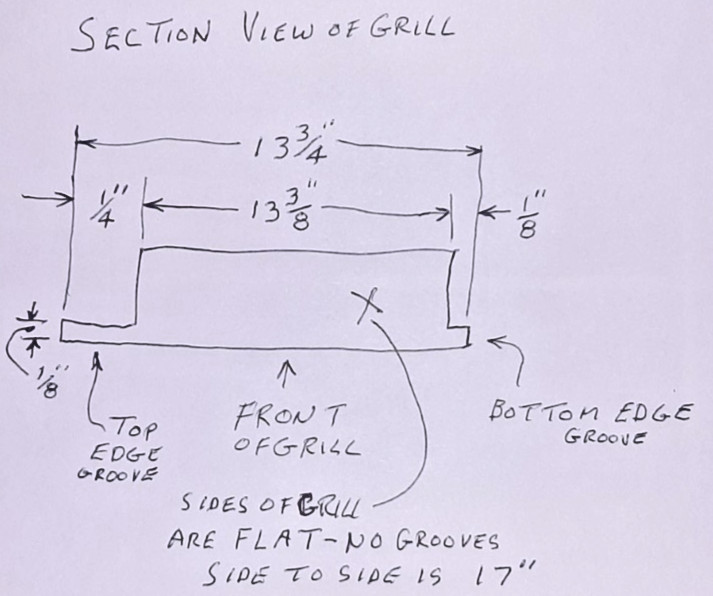 SECTION VIEW OF GRILL
13 3/4"
1/4"
13 3/8"
1/8"
1/8"
TOP
EDGE
GROOVE
FRONT
OF GRILL
BOTTOM EDGE
GROOVE
SIDES OF GRILL
ARE FLAT-NO GROOVES
SIDE TO SIDE IS 17"